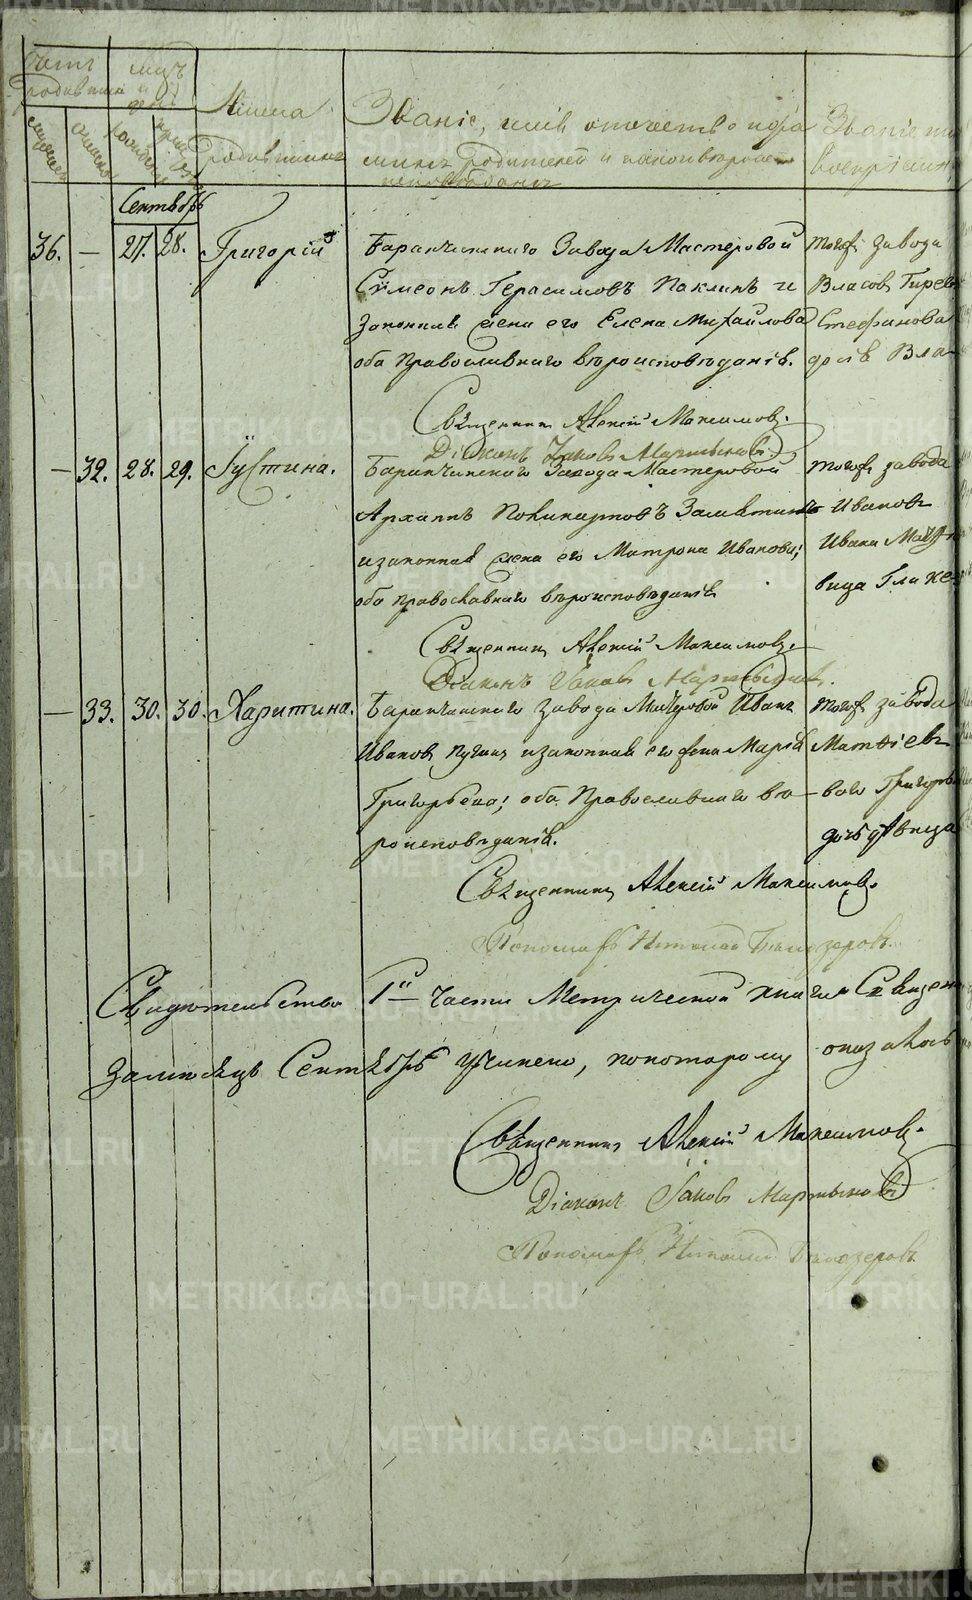 METRIKI.GASO-URAL.RU
Счетъ родившихся
мужеска
женска
мѣсяцъ и день
рожденія
крещенія
Имена родившихся
Званіе, имя, отчество и фа
милія родителей и какого вѣроис
повѣданія
Званіе
воспріем
Сентябрь
36. — 27. 28. Григорій
Баранчинскаго Завода Мастеровой
Симеонъ Герасимовъ Паклинъ и
законная жена его Елена Михайлова
оба Православнаго вѣроисповѣданія.
того завода
Власов
Стефанова
дочь Вла
Священникъ Алексій Максимовъ.
Діаконъ Іаковъ Мартыновъ
— 32. 28. 29. Іустина.
Баранчинскаго Завода Мастеровой
Архиппъ
и законная жена его Матрона Иванова;
оба православнаго вѣроисповѣданія
того завода
Ивановъ
Ивана
вица
Священникъ Алексій Максимовъ.
Діаконъ Іаковъ Мартыновъ.
— 33. 30. 30. Харитина.
Баранчинскаго завода Мастеровой Иванъ
Ивановъ и законная его жена Марія
Григорьева; оба Православнаго вѣ
роисповѣданія.
того завода
Матѳіевъ
вого Григорь
дочь дѣвица
Священникъ Алексій Максимовъ.
Пономарь Николай
Свидѣтельство 1й части Метрической книги Священ
за мѣсяцъ Сентябрь учинено, по которому оказалось
Священникъ Алексій Максимовъ.
Діаконъ Іаковъ Мартыновъ
Пономарь Николай
METRIKI.GASO-URAL.RU